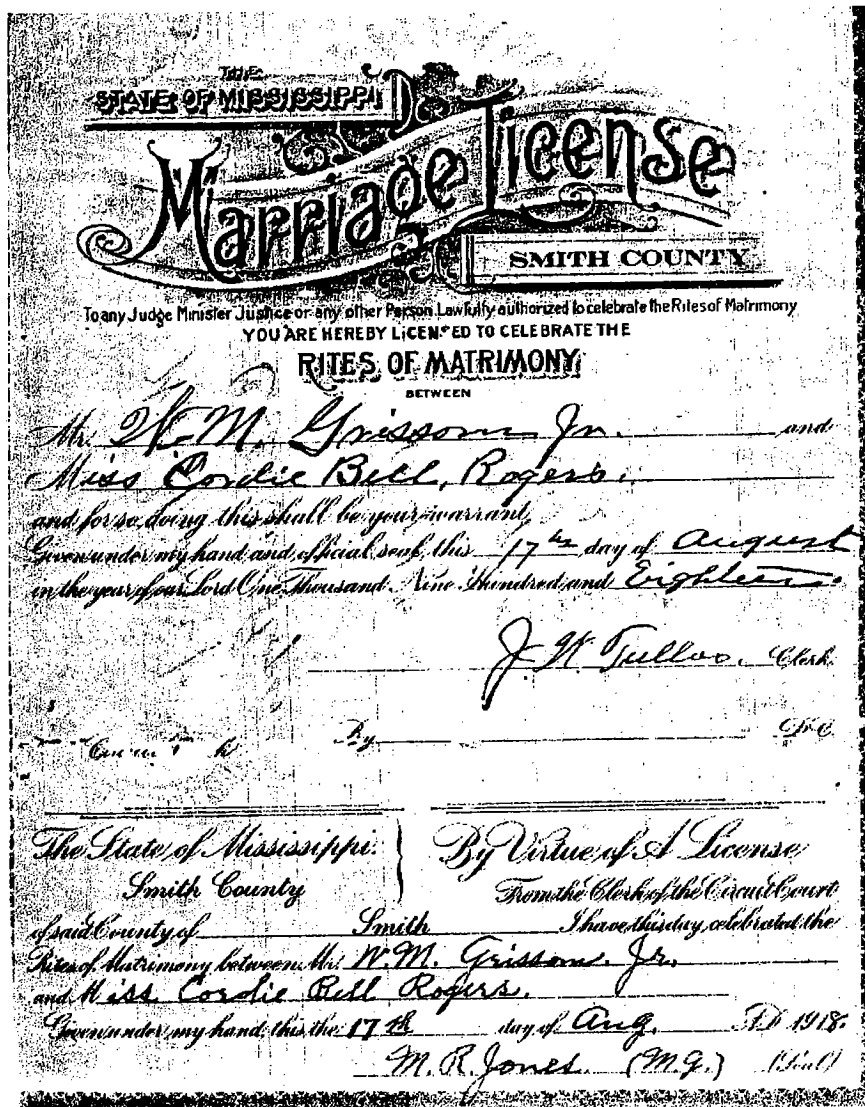 THE
STATE OF MISSISSIPPI
Marriage License
SMITH COUNTY
To any Judge Minister Justice or any other Person Lawfully authorized to celebrate the Rites of Matrimony
YOU ARE HEREBY LICENSED TO CELEBRATE THE
RITES OF MATRIMONY
BETWEEN
Mr. W. M. Grissom Jr. and
Miss Cordie Bell, Rogers.
and for so doing this shall be your warrant
Given under my hand and official seal, this 17th day of August
in the year of our Lord One Thousand Nine Hundred and Eighteen.
J. W. Tullos. Clerk.
By D.C.
The State of Mississippi. } By Virtue of A License
Smith County From the Clerk of the Circuit Court
of said County of Smith I have this day, celebrated the
Rites of Matrimony between Mr. W.M. Grissom. Jr.
and Miss. Cordie Bell Rogers.
Given under my hand this the 17th day of Aug. A.D. 1918.
M. R. Jones. (M.G.) (Seal)